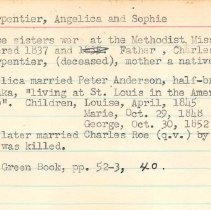 rpentier, Angelica and Sophie
se sisters were at the Methodist Miss
red 1837 and Father, Charles
rpentier, (deceased), mother a native
lica married Peter Anderson, half-br
ka, "living at St. Louis in the Amer
". Children, Louise, April, 1845
Marie, Oct. 29, 1848
George, Oct. 30, 1852
later married Charles Roe (q.v.) by
was killed.
Green Book, pp. 52-3, 40.